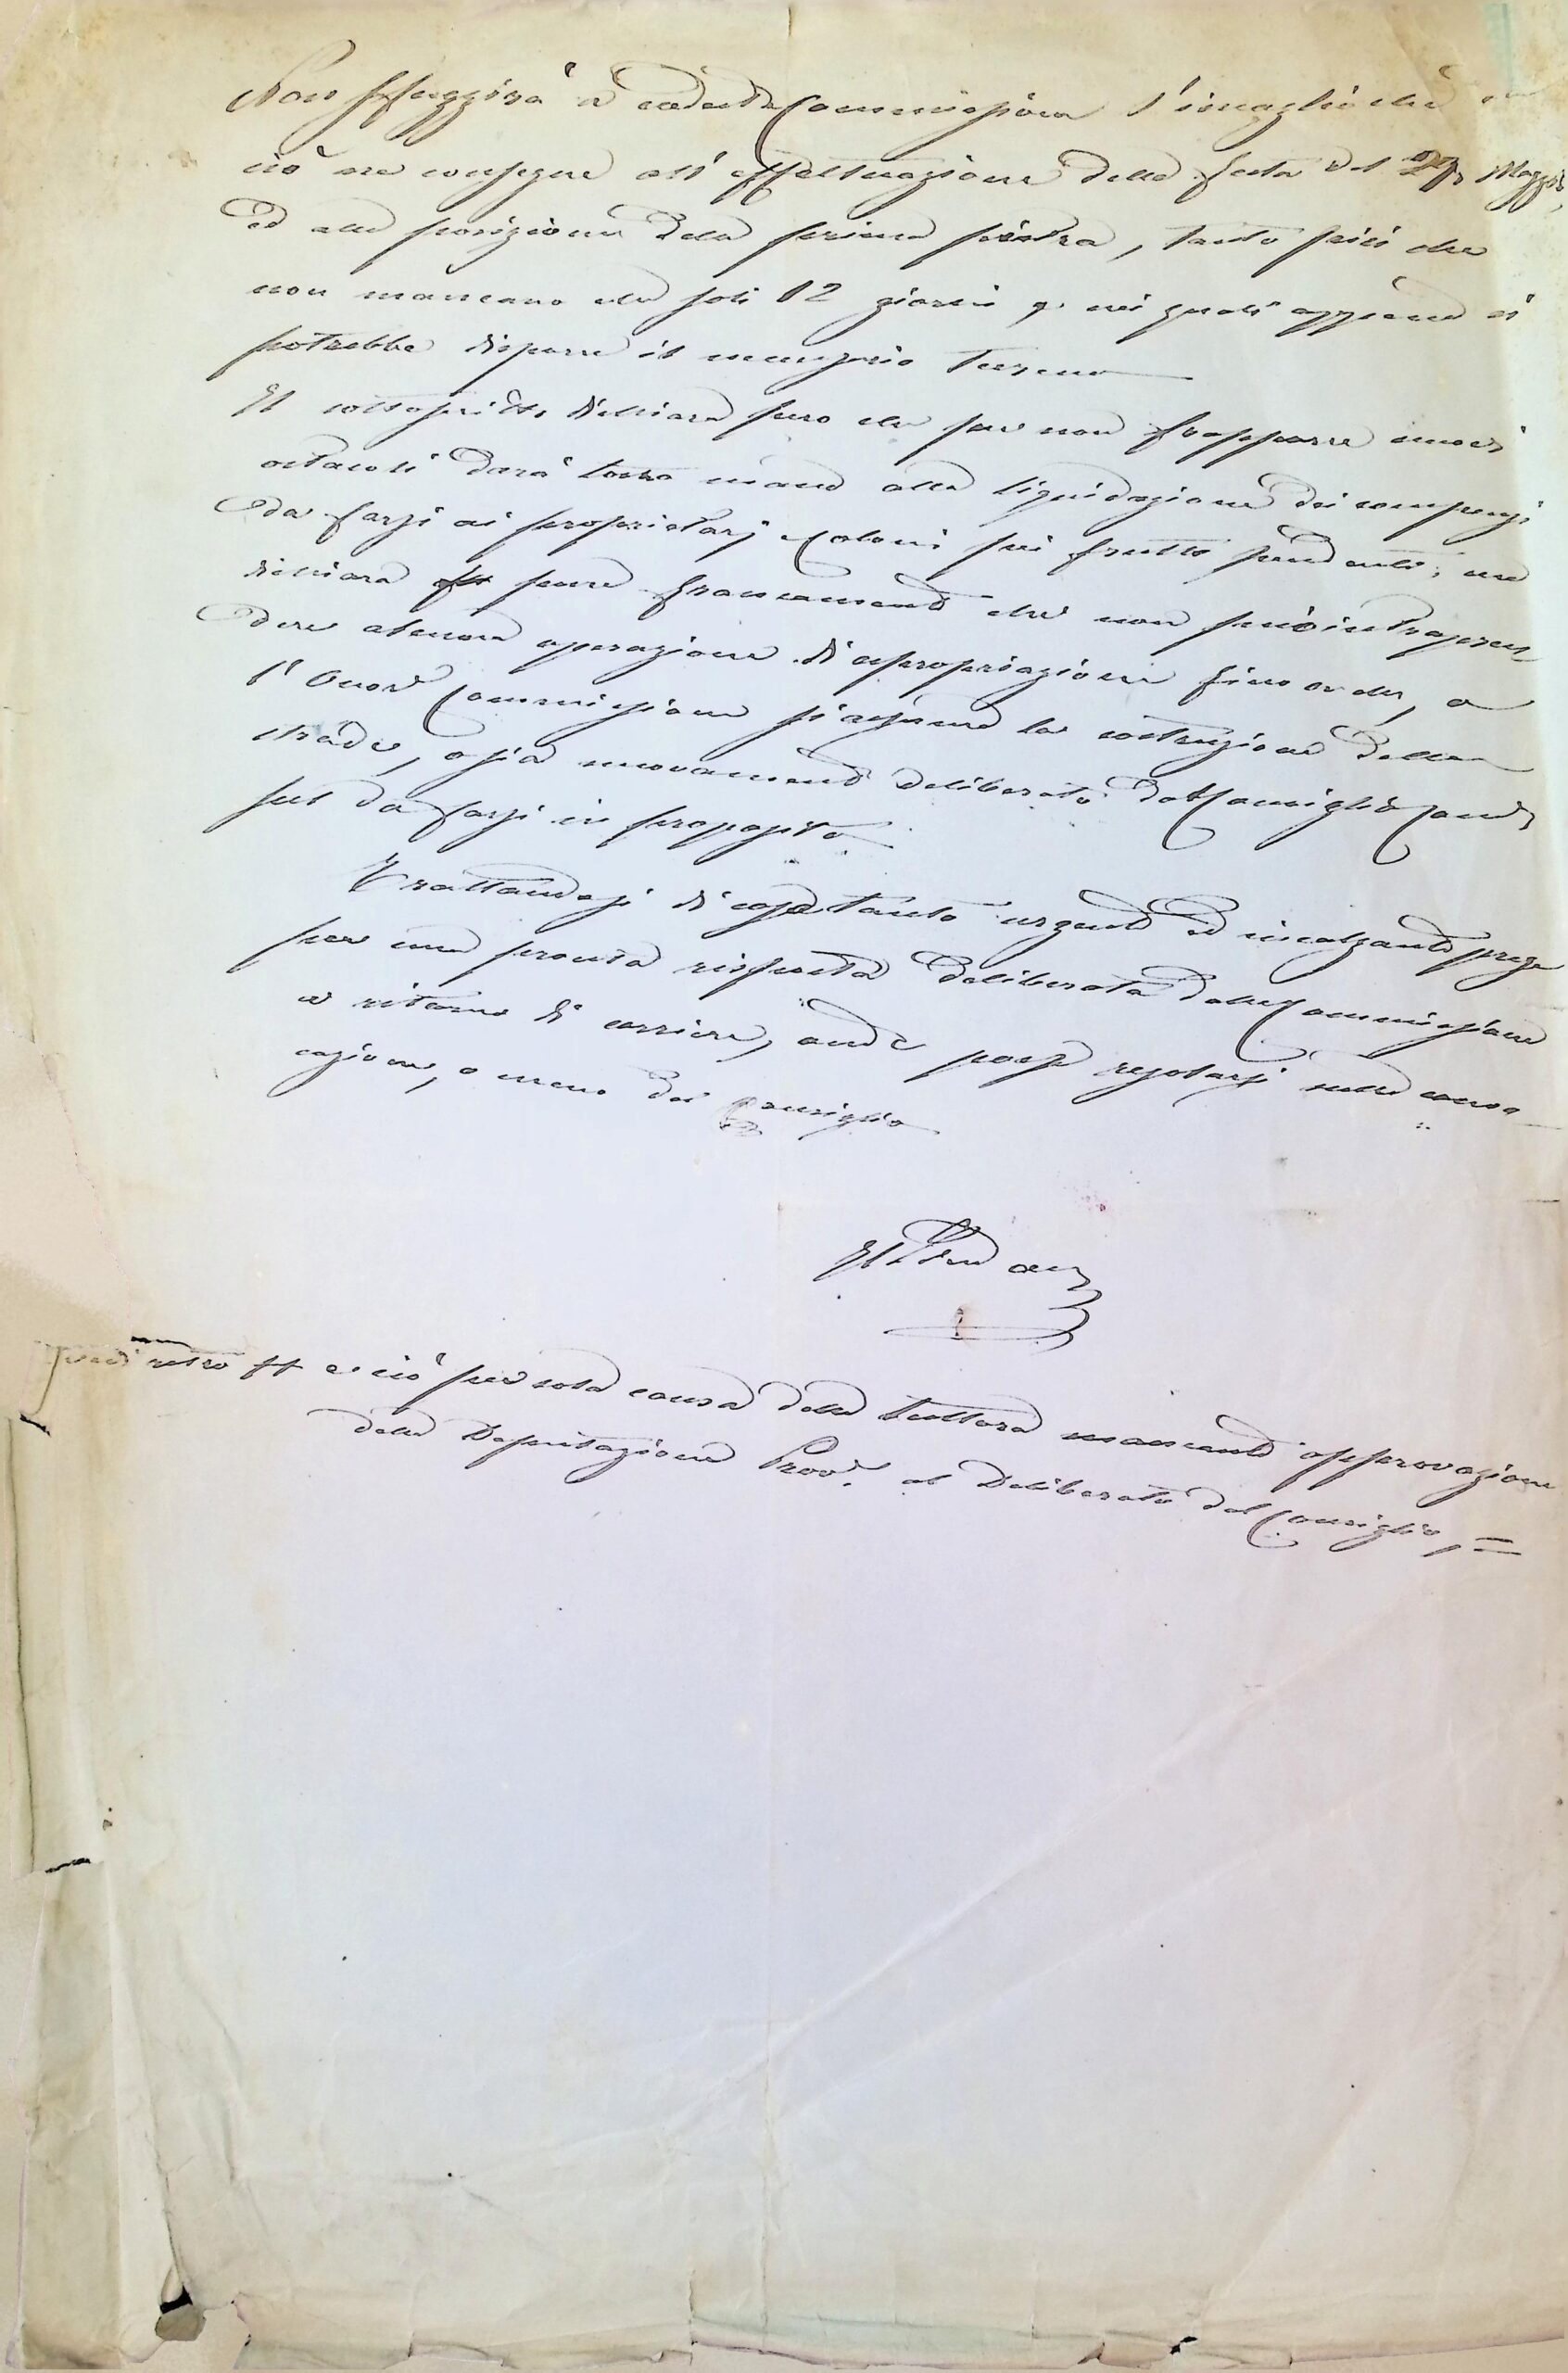 Non sfuggirà a codesta Commissione l'incaglio che
ciò ne consegue all'effettuazione della festa del 27 Maggio,
ed alla posizione della prima pietra, tanto più che
non mancano che soli 12 giorni nei quali appena si
potrebbe disporre il necessario terreno
Il sottoscritto dichiara pero che per non frapporre nuovi
ostacoli darà tosto mano alla liquidazione dei compensi
da farsi ai proprietarj e coloni pei frutti pendenti, ma
dichiara pure francamente che non può intrapren
dere alcuna operazione di espropriazione fino a che, o
l'Onor. Commissione si assuma la costruzione della
strada, o sia nuovamente deliberato dal Consiglio Com.
sul da farsi in proposito.
Trattandosi di cosa tanto urgente ed incalzante prega
per una pronta risposta deliberata dalla Commissione
a ritorno di corriere, onde possa regolarsi nella convo
cazione, o meno del Consiglio
Il Sindaco
vedi retro # e ciò per sola causa della tuttora mancante approvazione
della Deputazione Prov. al Deliberato del Consiglio, =